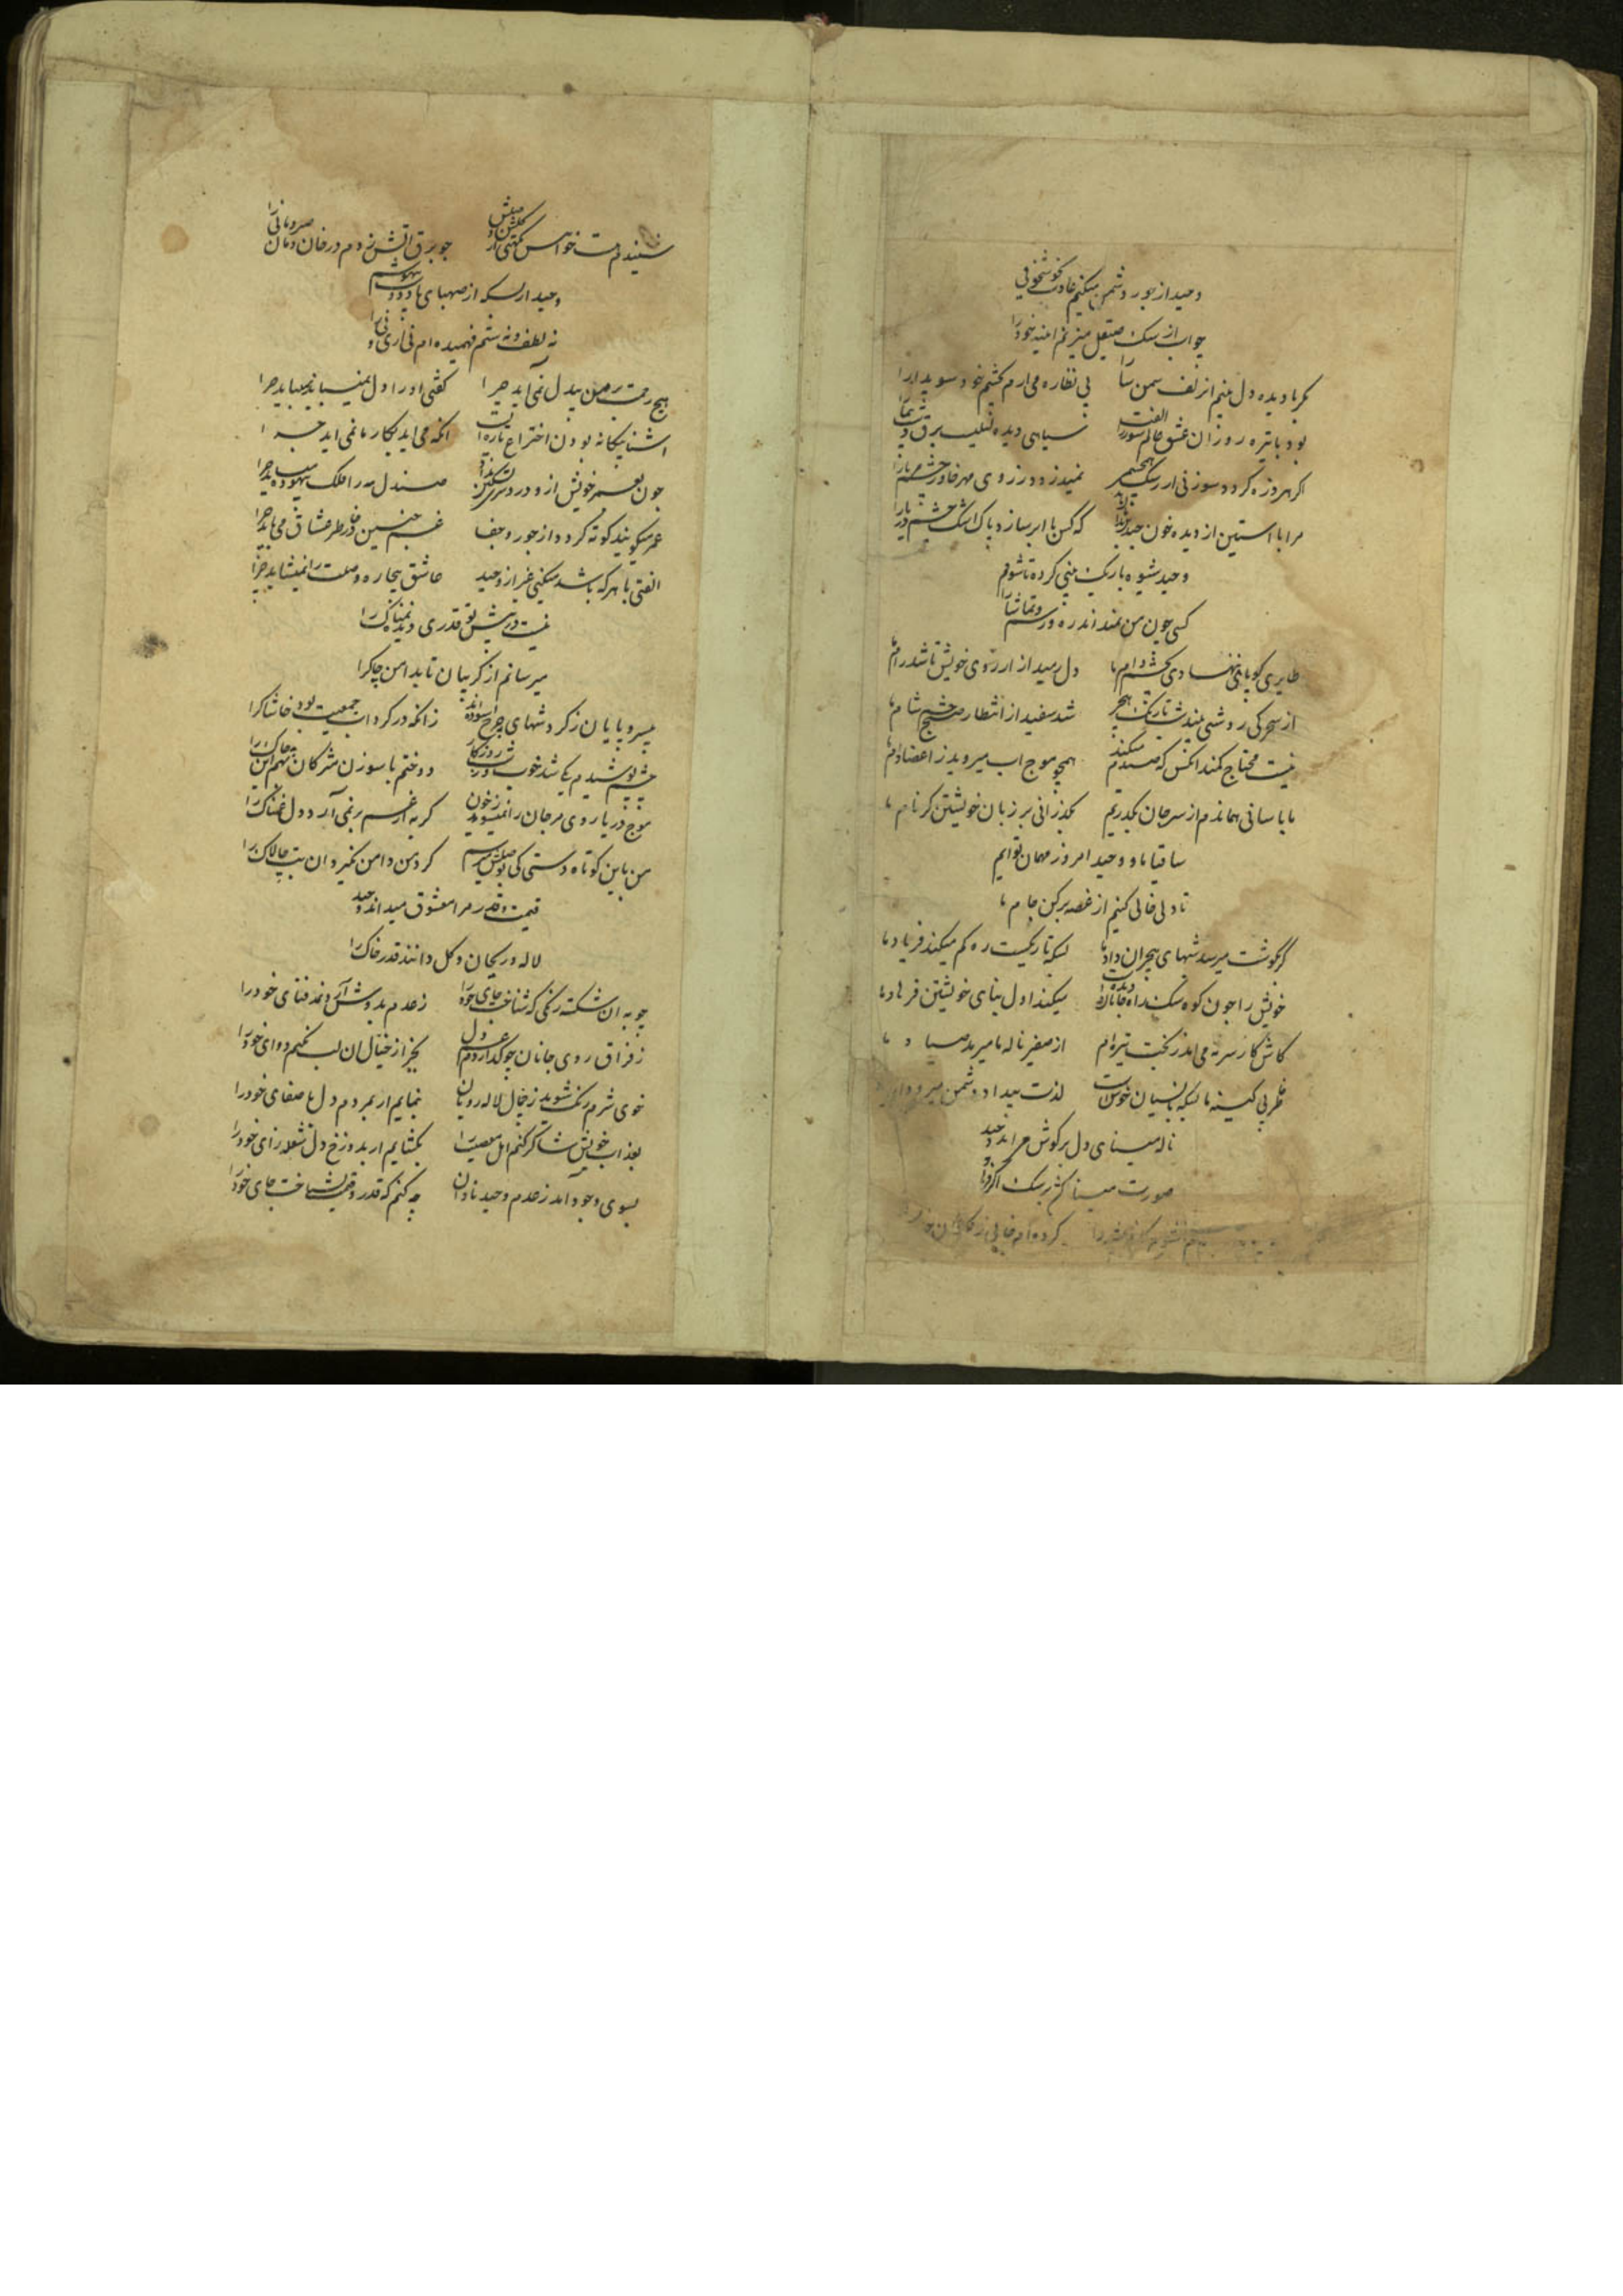 وحید از جور دشمن میکنم عادت نکو شخوئی
جواب از سنک صیقل میزنم ائینه خود را
مکر با دیده دل بینم انزلف سمن سا را پی نظاره می ارم بچشم خود سویدا را
بود با تیره روزان عشق عالم سوز را الفت سیاهی دیده
اکر هر وزه کردد سوزنی از رشک نمیدزدد ز روی مهر خاور چشم
مرا با استین از دیده خون چیدن که کس با ابر سازد پاک اشک چشم دریا را
وحید شیوه باریک بینی کرده تا شوقم
کسی چون من نمیداند ره و رسم تماشا را
طایری کو پا نمی دل رمید از ارزوی خویش تا شد رام ما
از سحر کی روشنی بیند شب تاریک هجر شد سفید از انتظار صبح چشم شام ما
نیست محتاج کمند انکس که صیدم میکند همچو موج اب میروید ز اعضا دام ما
ما باسانی همان دم از سر جان بکذریم بکذرانی بر زبان خویشتن کر نام ما
ساقیا ما و وحید امروز مهمان توایم
تا دلی خالی کنیم از غصه پر کن جام ما
کر بکوشت میرسد شبهای هجران داد ما بسکه تاریکست ره کم میکند فریاد ما
خویش را چون کوه سنک راه جانان دیده میکند اول بنای خویشتن فرهاد ما
کاش کار سرمه می امد ز بخت تیره ام از صفیر ناله ما میرمد صیاد ما
خاطر بی کینه ما بسکه با نسیان خوش است لذت بیداد دشمن میرود از یاد
ناله مینای دل بر کوش مراند وحید
صورت مینا کش بر سنک
کرده ام خالی ز
شنیدم مست خواهش کلشن وصلش چو برق اتش زدم در خان و مان صبر
وحید از بسکه از صهبای بیهوشم
نه لطف و نه ستم فهمیده ام نی
هیچ رحمت بر من بیدل نمی اید چرا کفتی او را دل نمیباید نمیباید چرا
اشنا بیکانه بودن اختراع تازه ایست انکه می اید بکار ما نمی اید چرا
چون بعمر خویش از و درد سرم صندل مه را فلک بیهوده میساید چرا
عمر میکویند کوته کردد از جور و جفا غم چنین در خاطر عشاق می پاید چرا
الفتی با هر که باشد میکنی غیر از وحید عاشق بیچاره وصلت را نمیشاید چرا
نیست در پیش تو قدری دیده نمناک را
میرسانم از کریبان تا بدامن چاک را
بیسر و پایان ز کردشهای چرخ اسوده اند زانکه در کرداب جمعیت بود خاشاک را
چشم پوشیدم یکا شد خوب و زشت روزکار دوختم با سوزن مژکان بهم این چاک را
موج دریا روی مرجان را نمیشوید ز خون کریه از غم بر نمی آرد دل غمناک را
من باین کوتاه دستی کی بوصلش میرسم کرد من دامن نکیرد ان بت چالاک را
قیمت و قدر مرا معشوق میداند وحید
لاله و ریحان و کل دانند قدر خاک را
چو به ان شکسته رنکی که شناخت جای خود را ز عدم بدوش آرد نمد فنای خود را
ز فراق روی جانان چو کدازدم غم دل بجز از خیال ان لب نکنم دوای خود را
خوی شرم رنک شوید ز خیال لاله رویان نمایم ار بمردم دل با صفای خود را
بعذاب خویش شاکر کنم اهل معصیت را بکشایم ار بدوزخ دل شعله زای خود را
بسوی وجود امد ز عدم وحید نادان چه کنم که قدر و قیمت نشناخت جای خود را